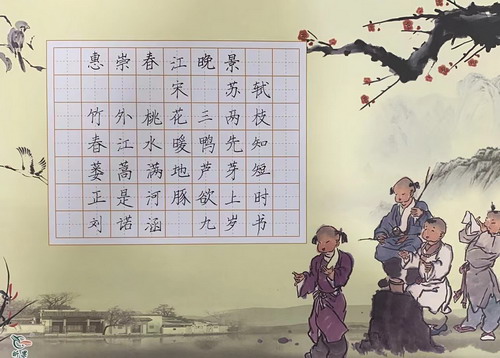 惠崇春江晚景
宋 苏轼
竹外桃花三两枝
春江水暖鸭先知
蒌蒿满地芦芽短
正是河豚欲上时
刘诺涵 九岁书